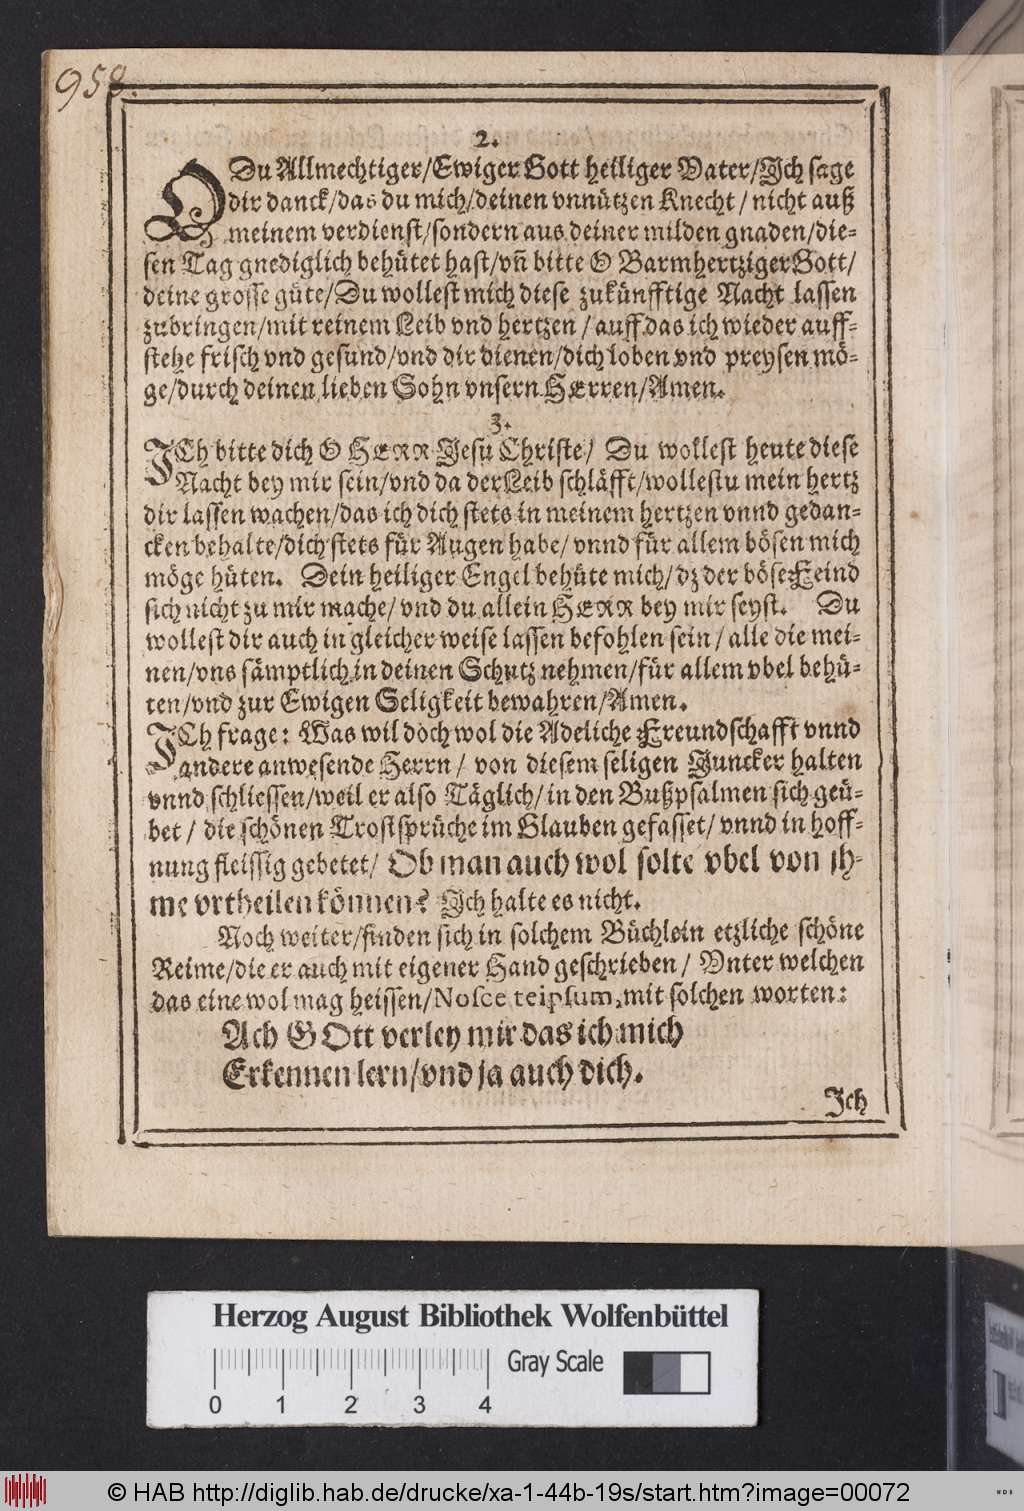 958.
2.
O Du Allmechtiger/Ewiger Gott heiliger Vater/Ich sage
dir danck/das du mich/deinen vnnützen Knecht / nicht auß
meinem verdienst/sondern aus deiner milden gnaden/die-
sen Tag gnediglich behütet hast/vñ bitte O Barmhertziger Gott/
deine grosse güte/Du wollest mich diese zukünfftige Nacht lassen
zubringen/mit reinem Leib vnd hertzen / auff das ich wieder auff-
stehe frisch vnd gesund/vnd dir dienen/dich loben vnd preysen mö-
ge/durch deinen lieben Sohn vnsern HErren/Amen.
3.
ICh bitte dich O HERR Jesu Christe/ Du wollest heute diese
Nacht bey mir sein/vnd da der Leib schläfft/wollestu mein hertz
dir lassen wachen/das ich dich stets in meinem hertzen vnnd gedan-
cken behalte/dich stets für Augen habe/ vnnd für allem bösen mich
möge hüten. Dein heiliger Engel behüte mich/dz der böse Feind
sich nicht zu mir mache/ vnd du allein HERR bey mir seyst. Du
wollest dir auch in gleicher weise lassen befohlen sein / alle die mei-
nen/vns sämptlich in deinen Schutz nehmen/für allem vbel behü-
ten/vnd zur Ewigen Seligkeit bewahren/Amen.
ICh frage: Was wil doch wol die Adeliche Freundschafft vnnd
andere anwesende Herrn/ von diesem seligen Juncker halten
vnnd schliessen/weil er also Täglich/in den Bußpsalmen sich geü-
bet / die schönen Trostsprüche im Glauben gefasset/ vnnd in hoff-
nung fleissig gebetet/ Ob man auch wol solte vbel von ih-
me vrtheilen können? Ich halte es nicht.
Noch weiter/finden sich in solchem Büchlein etzliche schöne
Reime/die er auch mit eigener Hand geschrieben / Vnter welchen
das eine wol mag heissen/Nosce teipsum, mit solchen worten:
Ach GOtt verley mir das ich mich
Erkennen lern/vnd ja auch dich.
Ich
Herzog August Bibliothek Wolfenbüttel
Gray Scale
0 1 2 3 4
© HAB http://diglib.hab.de/drucke/xa-1-44b-19s/start.htm?image=00072